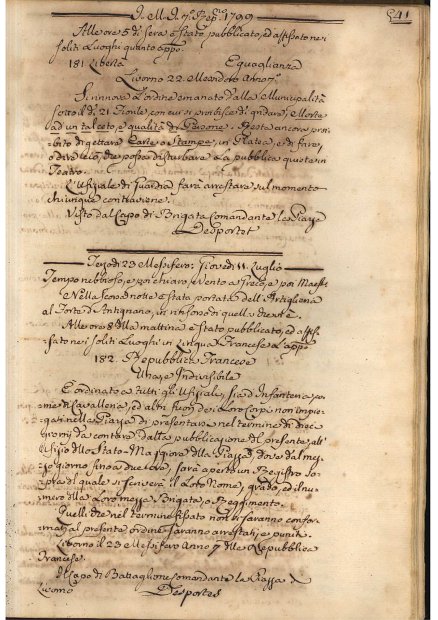 541
Alle ore 5 di sera è stato pubblicato, ed affissato nei
soliti Luoghi quanto app.
181 Libertà Eguaglianza
Livorno 22. Messidoro Anno 7°
Si rinnova l'ordine emanato dalla Municipalità
sotto il dì 21 con cui si proibisce di gridare, Morte
ad un tal ceto, e qualità di Persone. Resta ancora proi-
bito di gettare Carte o Stampe, in Platea, e di fare,
o dire ciò, che possa disturbare la pubblica quiete in
Teatro.
L'Ufiziale di Guardia farà arrestare sul momento
chiunque contraviene.
Visto dal Capo di Brigata Comandante la Piazza
Desportet
Giovedì 11. Luglio
Tempo nebbioso, e poi chiaro, e Vento a Greco, e poi Maest.
Nella scorsa notte è stata portata dell'Artiglieria
al Forte di Antignano, in rinforzo di quell'esistente.
Alle ore 8 della mattina è stato pubblicato, ed affis-
sato nei soliti Luoghi in Lingua Francese l'app.
182. Repubblica Francese
Una ed Indivisibile
È ordinato a tutti gli Ufiziali, sia d'Infanteria, co-
me di Cavalleria, ed altri fuori dei Loro Corpi non impie-
gati nella Piazza di presentarsi nel termine di dieci
giorni da contare dalla pubblicazione del presente, all'
Ufizio dello Stato-Maggiore della Piazza, dove dal mez-
zo giorno fino a due ora, sarà aperto un Registro so-
pra del quale si scriverà il Loro Nome, grado, ed il nu-
mero della Loro mezza Brigata, o Reggimento.
Quelli che nel termine fissato non si saranno confor-
mati al presente ordine saranno arrestati, e puniti.
Livorno il 23 Messifero Anno 7 della Repubblica
Francese
Il Capo di Battaglione Comandante la Piazza di
Livorno Desportes